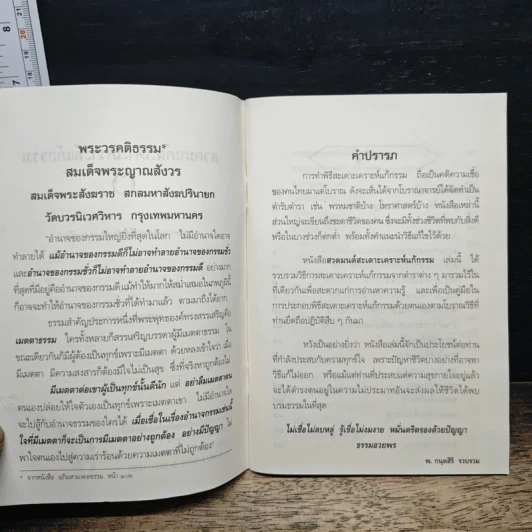 พระวรคติธรรม*
สมเด็จพระญาณสังวร
สมเด็จพระสังฆราช สกลมหาสังฆปริณายก
วัดบวรนิเวศวิหาร กรุงเทพมหานคร
"อำนาจของกรรมใหญ่ยิ่งที่สุดในโลก ไม่มีอำนาจใดอาจ
ทำลายได้ แม้อำนาจของกรรมดีก็ไม่อาจทำลายอำนาจของกรรมชั่ว
และอำนาจของกรรมชั่วก็ไม่อาจทำลายอำนาจของกรรมดี อย่างมาก
ที่สุดที่มีอยู่คืออำนาจของกรรมดี แม้ทำให้มากให้สม่ำเสมอในภพภูมินี้
ก็อาจจะทำให้อำนาจของกรรมชั่วที่ได้ทำมาแล้ว ตามมาถึงได้ยาก
ธรรมสำคัญประการหนึ่งที่พระพุทธองค์ทรงสรรเสริญคือ
เมตตาธรรม ใครทั้งหลายก็สรรเสริญบรรดาผู้มีเมตตาธรรม ใน
ขณะเดียวกันก็มีผู้ต้องเป็นทุกข์เพราะมีเมตตา ด้วยหลงเข้าใจว่า เมื่อ
มีเมตตา มีความสงสารก็ต้องมีใจไม่เป็นสุข ซึ่งที่จริงหาถูกต้องไม่
มีเมตตาต่อเขาผู้เป็นทุกข์นั้นดีนัก แต่ อย่าลืมเมตตาตน
ตนเองปล่อยให้ใจตัวเองเป็นทุกข์เพราะเมตตาเขา ไม่มีอำนาจใด
จะไปสู้กับอำนาจกรรมของใครได้ เมื่อเชื่อในเรื่องอำนาจกรรมเช่นนี้
ใจที่มีเมตตาก็จะเป็นการมีเมตตาอย่างถูกต้อง อย่างมีปัญญา ไม่
พาใจตนเองไปสู่ความเร่าร้อนด้วยความเมตตาที่ไม่ถูกต้อง"
* จากหนังสือ อภิมหามงคลธรรม หน้า ๑๐๒
คำปรารภ
การทำพิธีสะเดาะเคราะห์แก้กรรม ถือเป็นคติความเชื่อ
ของคนไทยมาแต่โบราณ ดังจะเห็นได้จากโบราณาจารย์ได้จัดทำเป็น
ตำรับ ตำรา เช่น พรหมชาติบ้าง โหราศาสตร์บ้าง หนังสือเหล่านี้
ส่วนใหญ่จะเขียนถึงชะตาชีวิตของคน ซึ่งจะมีทั้งช่วงชีวิตที่พบกับสิ่งดี
หรือในบางช่วงก็ตกต่ำ พร้อมทั้งคำแนะนำวิธีแก้ไขไว้ด้วย
หนังสือสวดมนต์สะเดาะเคราะห์แก้กรรม เล่มนี้ ได้
รวบรวมวิธีการสะเดาะเคราะห์แก้กรรมจากตำราต่าง ๆ มารวมไว้ใน
ที่เดียวกันเพื่อสะดวกแก่การอ่านหาความรู้ และเพื่อเป็นคู่มือใน
การประกอบพิธีสะเดาะเคราะห์แก้กรรมด้วยตนเองตามโบราณวิธีที่
ท่านยึดถือปฏิบัติสืบ ๆ กันมา
หวังเป็นอย่างยิ่งว่า หนังสือเล่มนี้จักเป็นประโยชน์ต่อท่าน
ที่กำลังประสบกับความทุกข์ใจ เพราะปัญหาชีวิตบางอย่างที่อาจหา
วิธีแก้ไม่ออก หรือแม้แต่ท่านที่ประสบแต่ความสุขกายใจอยู่แล้ว
จะได้ดำรงตนอยู่ในความไม่ประมาทอันจะส่งผลให้ชีวิตได้พบ
บรมธรรมในที่สุด
ไม่เชื่อไม่ลบหลู่ รู้เชื่อไม่งมงาย หมั่นตริตรองด้วยปัญญา
ธรรมอวยพร
พ. กนฺตสิริ รวบรวม